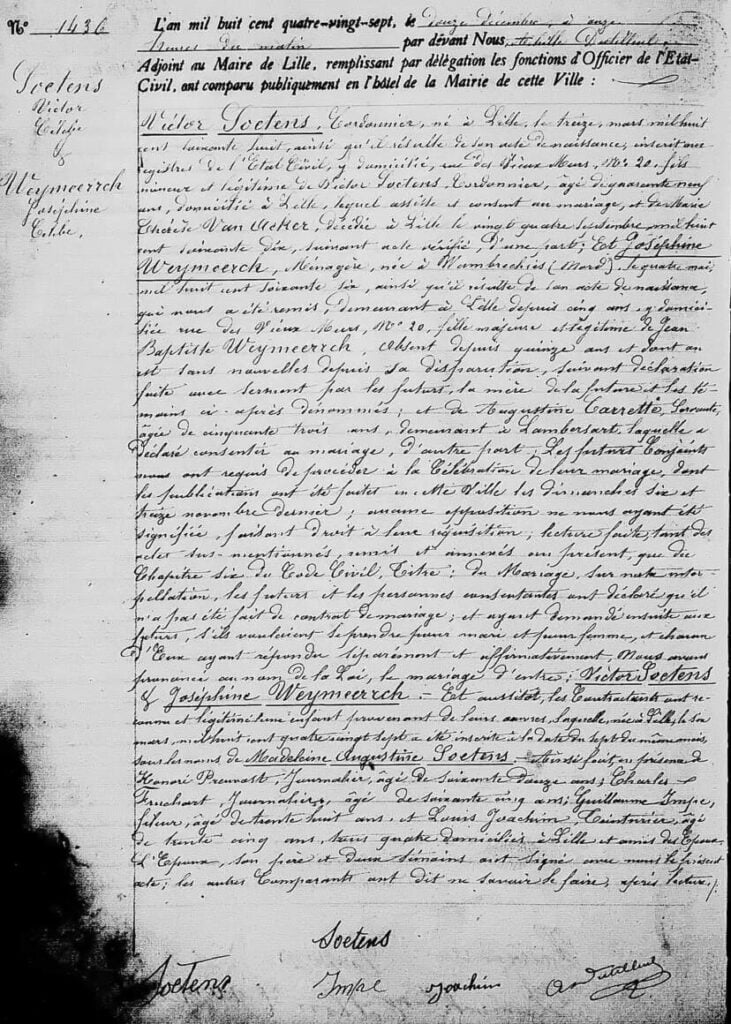 No 1436
L'an mil huit cent quatre-vingt-sept, le douze décembre, à onze
heures du matin par devant Nous, Achille
Adjoint au Maire de Lille, remplissant par délégation les fonctions d'Officier de l'Etat-
Civil, ont comparu publiquement en l'hôtel de la Mairie de cette Ville :
Soetens
Victor
Célibe
&
Weymeerrch
Joséphine
Célibe.
Victor Soetens, Cordonnier, né à Lille, le treize, mars mil huit
cent soixante huit, ainsi qu'il résulte de son acte de naissance, inscrit aux
registres de l'Etat Civil, y domicilié, rue des Vieux Murs, No 20, fils
mineur et légitime de Victor Soetens, Cordonnier, âgé de quarante neuf
ans, domicilié à Lille, lequel assiste et consent au mariage, et de Marie
Thérèse Van Acker, décédée à Lille le vingt quatre septembre, mil huit
cent soixante dix, suivant acte vérifié d'une part; Et Joséphine
Weymeerch, Ménagère, née à Wambrechies (Nord), le quatre mai,
mil huit cent soixante six, ainsi qu'il résulte de son acte de naissance,
qui nous a été remis, demeurant à Lille depuis cinq ans, y domici-
liée rue des Vieux Murs, No 20, fille majeure et légitime de Jean
Baptiste Weymeerrch, absent depuis quinze ans et dont on
est sans nouvelles depuis sa disparition, suivant déclaration
faite avec serment par les futurs, la mère de la future et les té-
moins ci-après dénommés; et de Augustine Carrette, Servante,
âgée de cinquante trois ans, demeurant à Lambersart, laquelle a
déclaré consentir au mariage, d'autre part; Les futurs Conjoints
nous ont requis de procéder à la Célébration de leur mariage, dont
les publications ont été faites en cette Ville les dimanches six et
treize novembre dernier; aucune opposition ne nous ayant été
signifiée, faisant droit à leur réquisition; lecture faite, tant des
actes sus-mentionnés, remis et annexés au présent, que du
Chapitre six du Code Civil, Titre: du Mariage, sur notre inter-
pellation, les futurs et les personnes consentantes ont déclaré qu'il
n'a pas été fait de contrat de mariage; et ayant demandé ensuite aux
futurs, s'ils voulaient se prendre pour mari et pour femme, et chacun
d'Eux ayant répondu séparément et affirmativement, Nous avons
prononcé au nom de la Loi, le mariage d'entre: Victor Soetens
& Joséphine Weymeerrch - Et aussitôt, les Contractants ont re-
connu et légitimé une enfant provenant de leurs œuvres, laquelle, née à Lille, le six
mars, mil huit cent quatre vingt sept a été inscrite à la date du sept du même mois,
sous les noms de Madeleine Augustine Soetens. Ainsi fait, en présence de
Honoré Prevost, Journalier, âgé de soixante douze ans; Charles
Fruchart, Journalier, âgé de soixante cinq ans; Guillaume Impe,
fileur, âgé de trente huit ans et Louis Joachim, Teinturier, âgé
de trente cinq ans, tous quatre domiciliés à Lille et amis des Epoux
L'Epoux, son père et deux témoins ont signé avec nous le présent
acte; les autres Comparants ont dit ne savoir le faire, après lecture.
Soetens
Soetens Impe Joachim